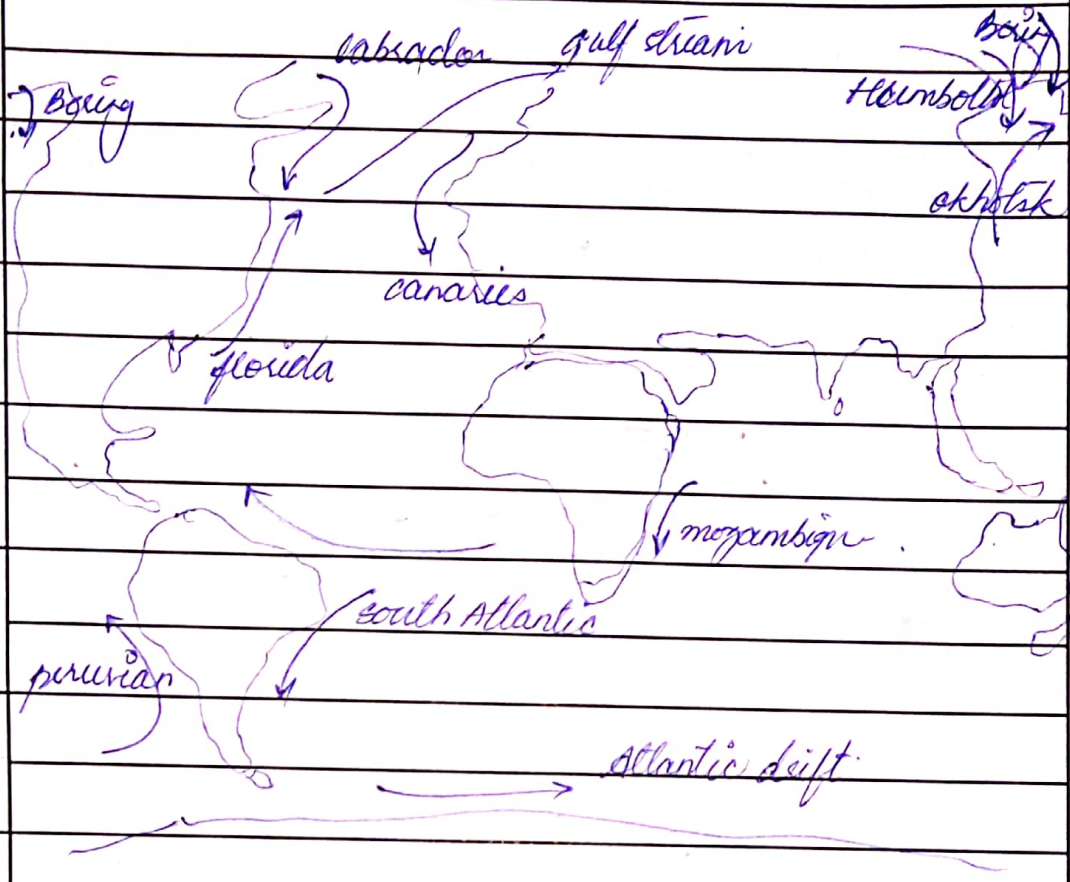 labrador
gulf stream
Bering
Bering
Humboldt
okhotsk
canaries
florida
mozambiqu
south Atlantic
peruvian
Atlantic drift